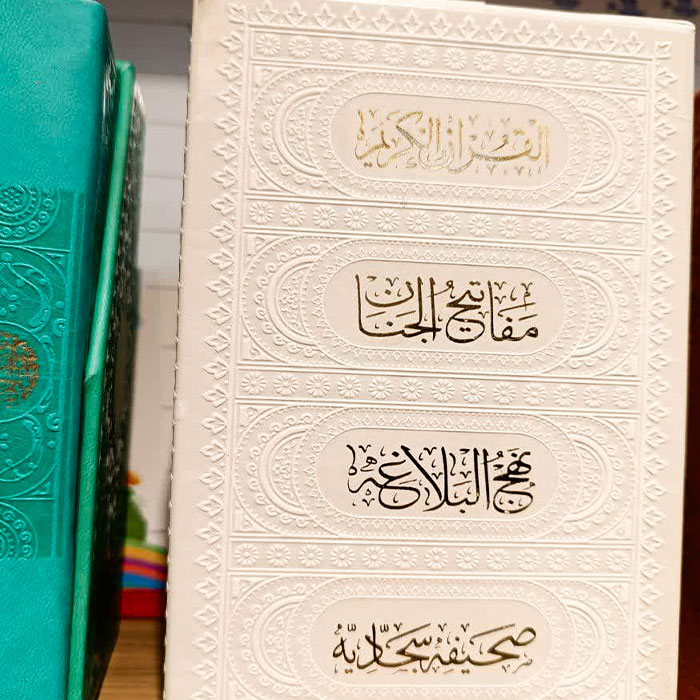 القرآن الكريم
مفاتيح الجنان
نهج البلاغه
صحيفه سجاديه